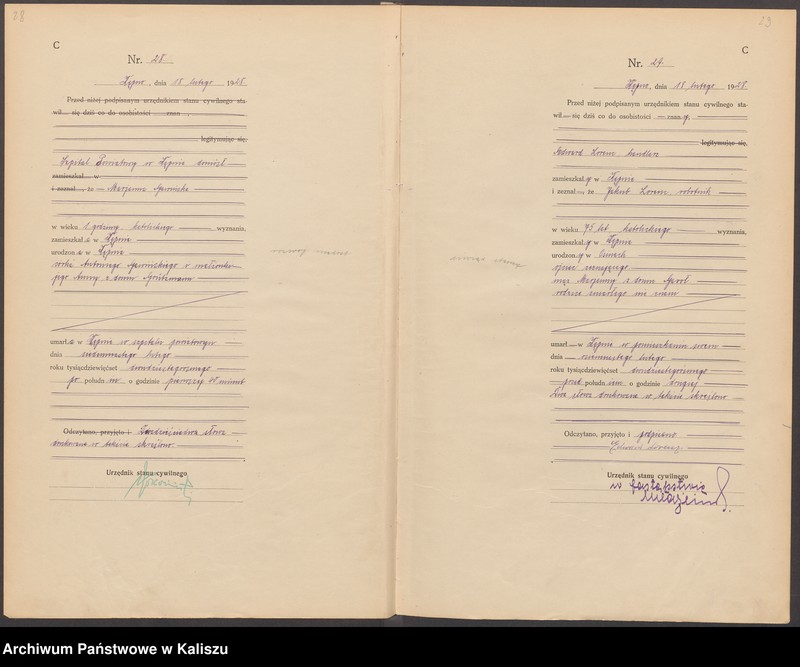 28
C
Nr. 28.
Kępno, dnia 18 lutego 1928
Przed niżej podpisanym urzędnikiem stanu cywilnego sta-
wił się dziś co do osobistości znan
legitymując się
Szpital Powiatowy w Kępnie doniósł
zamieszkał w
i zeznał, że Marjanna
w wieku 2 godziny katolickiego wyznania,
zamieszkała w Kępnie
urodzona w Kępnie
córka Antoniego i małżonki
jego Anny z domu
umarła w Kępnie w szpitalu powiatowym
dnia osiemnastego lutego
roku tysiącdziewięćset dwudziestegoósmego
po południu o godzinie pierwszej minut
Odczytano, przyjęto i słowa
drukowane w tekście skreślono.
Urzędnik stanu cywilnego
29
C
Nr. 29.
Kępno, dnia 18 lutego 1928
Przed niżej podpisanym urzędnikiem stanu cywilnego sta-
wił się dziś co do osobistości znany
legitymując się
Edward Lorenz handlarz
zamieszkały w Kępnie
i zeznał, że Jakub Lorenz robotnik
w wieku 75 lat katolickiego wyznania,
zamieszkały w Kępnie
urodzony w
mąż Marjanny z domu
rodzice zmarłego nie znani
umarł w Kępnie w pomieszkaniu swem
dnia osiemnastego lutego
roku tysiącdziewięćset dwudziestegoósmego
przed południem o godzinie drugiej
Dwa słowa drukowane w tekście skreślono
Odczytano, przyjęto i podpisano
Edward Lorenz
Urzędnik stanu cywilnego
w zastępstwie
Archiwum Państwowe w Kaliszu